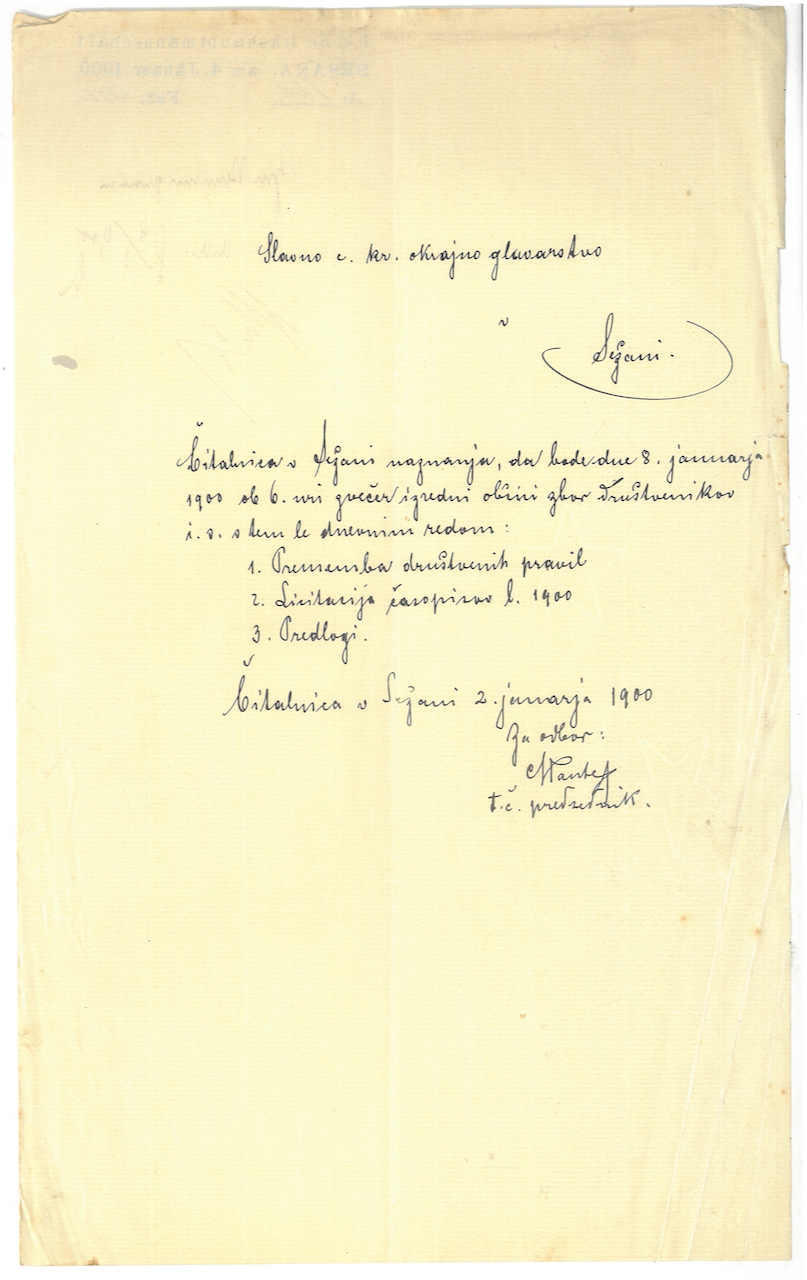 Slavno c. kr. okrajno glavarstvo
v
Sežani.
Čitalnica v Sežani naznanja, da bode dne 8. januarja
1900 ob 6. uri zvečer izredni občni zbor društvenikov
i. s. s tem le dnevnim redom:
1. Premember društvenih pravil
2. Licitacija časopisov l. 1900
3. Predlogi.
Čitalnica v Sežani 2. januarja 1900
Za odbor:
t.č. predsednik.